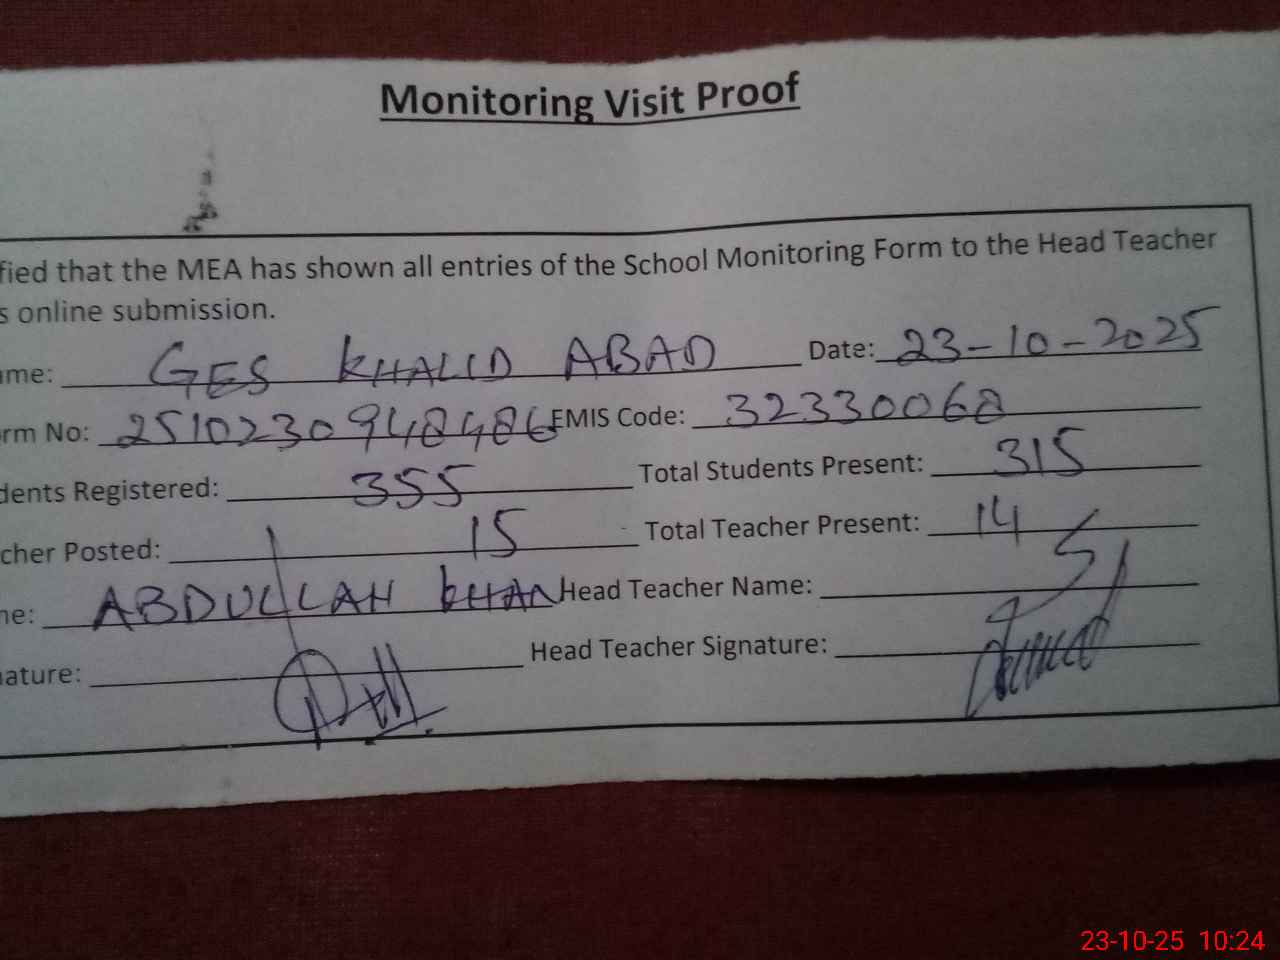 Monitoring Visit Proof
fied that the MEA has shown all entries of the School Monitoring Form to the Head Teacher
s online submission.
me: GES KHALID ABAD Date: 23-10-2025
rm No: 2510230948486 EMIS Code: 32330068
dents Registered: 355 Total Students Present: 315
cher Posted: 15 Total Teacher Present: 14
ne: ABDULLAH KHAN Head Teacher Name:
ature: Head Teacher Signature:
23-10-25 10:24